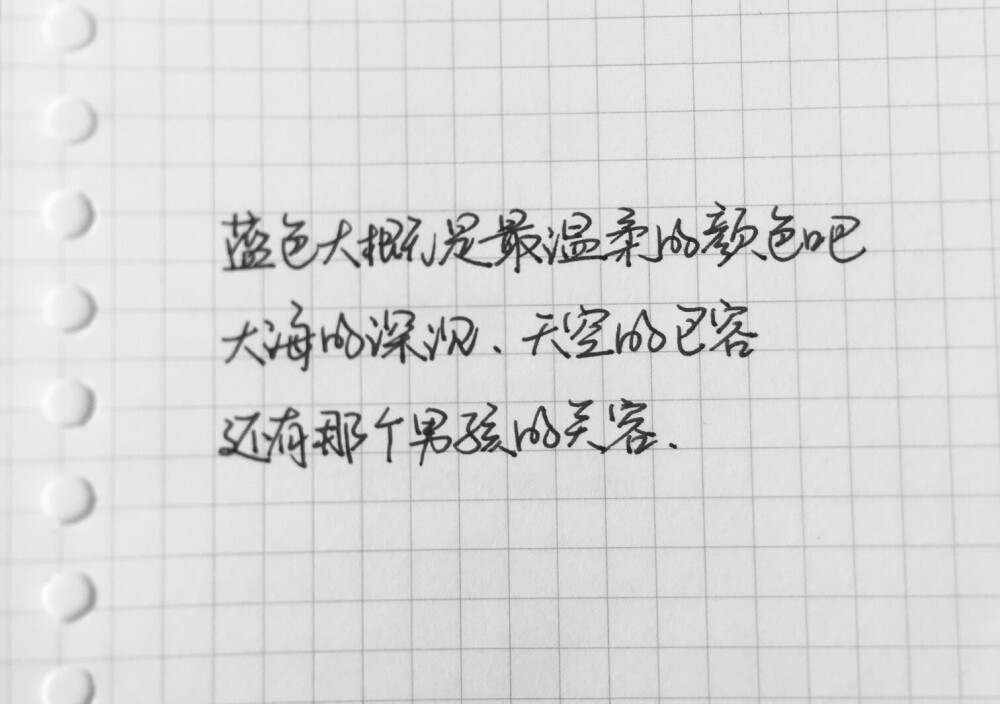 蓝色大概是最温柔的颜色吧
大海的深沉、天空的包容
还有那个男孩的笑容.